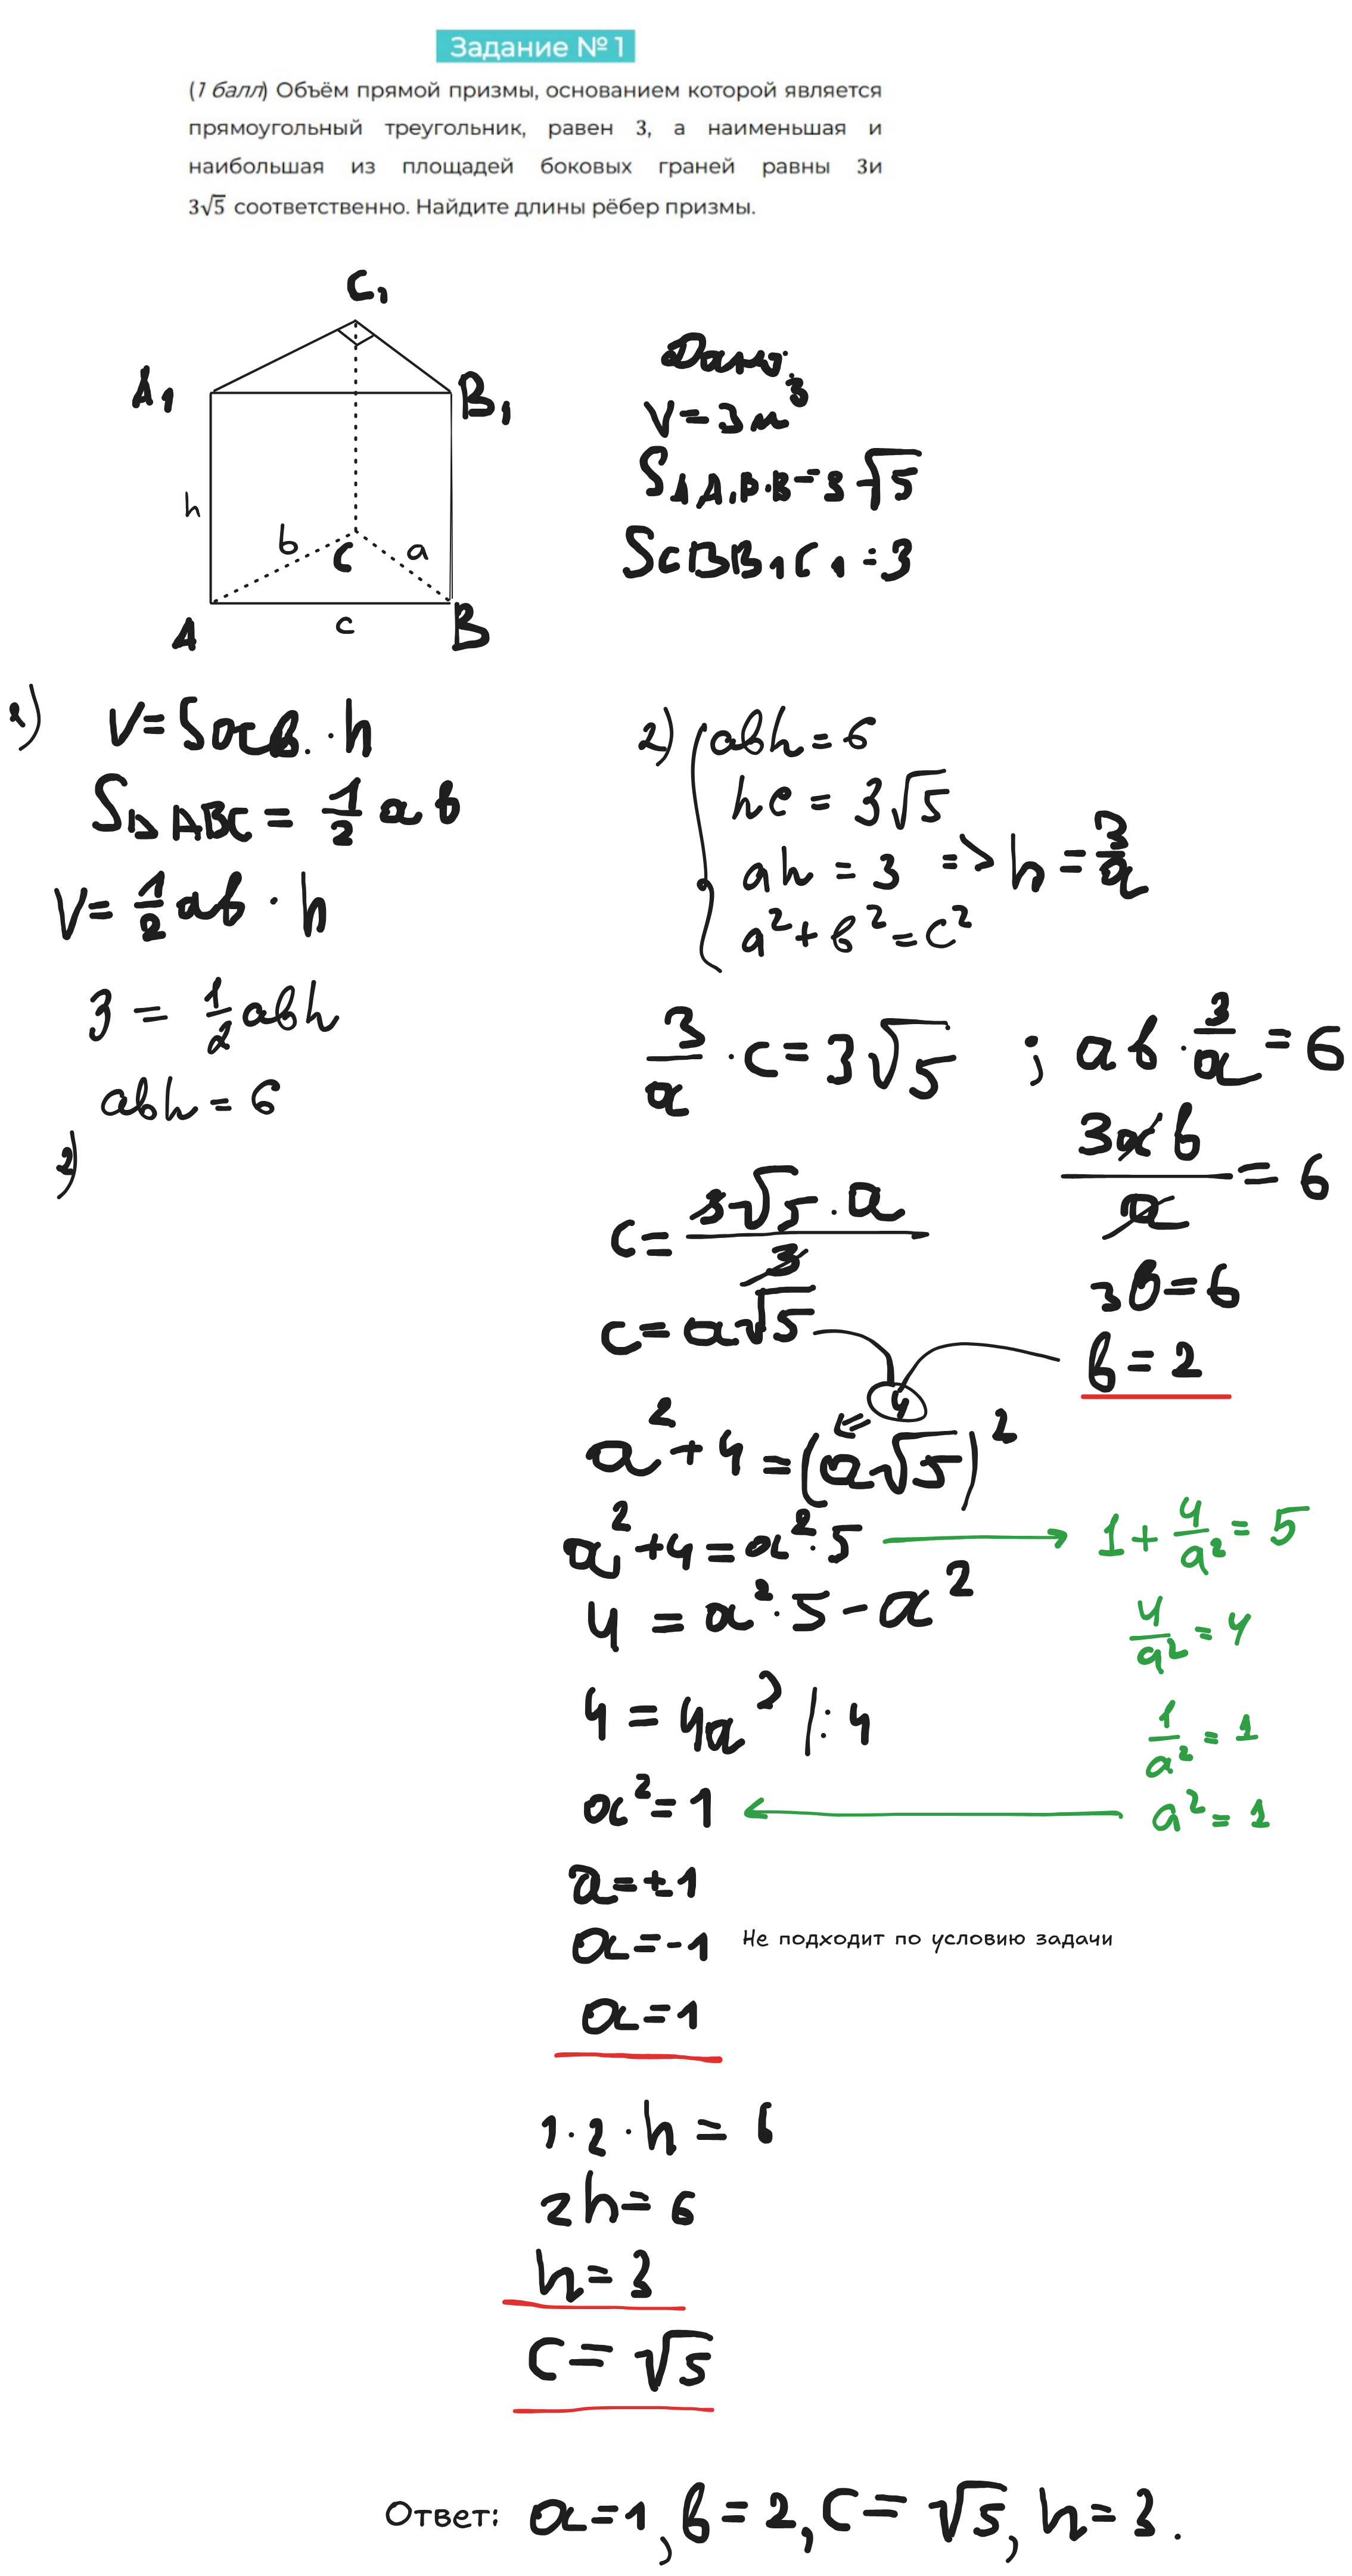 Задание № 1
(1 балл) Объём прямой призмы, основанием которой является
прямоугольный треугольник, равен 3, а наименьшая и
наибольшая из площадей боковых граней равны 3и
3√5 соответственно. Найдите длины рёбер призмы.
C₁
A₁
B₁
h
b
C
a
A
c
B
Дано:
V=3м³
S AA₁B₁B=3√5
S CBB₁C₁=3
1)
V=Sосв.·h
S△ABC = 1/2 aв
V= 1/2 aв · h
3 = 1/2 aвh
aвh = 6
2)
2) aвh = 6
hc = 3√5
ah = 3 => h = 3/a
a²+в²=c²
3/a · c = 3√5 ; aв · 3/a = 6
c = 3√5·a/3
c = a√5
3aв/a = 6
3в=6
в = 2
4
a²+4=(a√5)²
⇐
a²+4=a²·5
4 = a²·5-a²
4 = 4a² |:4
a²=1
1+4/a²=5
4/a²=4
1/a²=1
a²=1
a=±1
a=-1 Не подходит по условию задачи
a=1
1·2·h = 6
2h=6
h=3
c=√5
Ответ: a=1, в=2, c=√5, h=3.